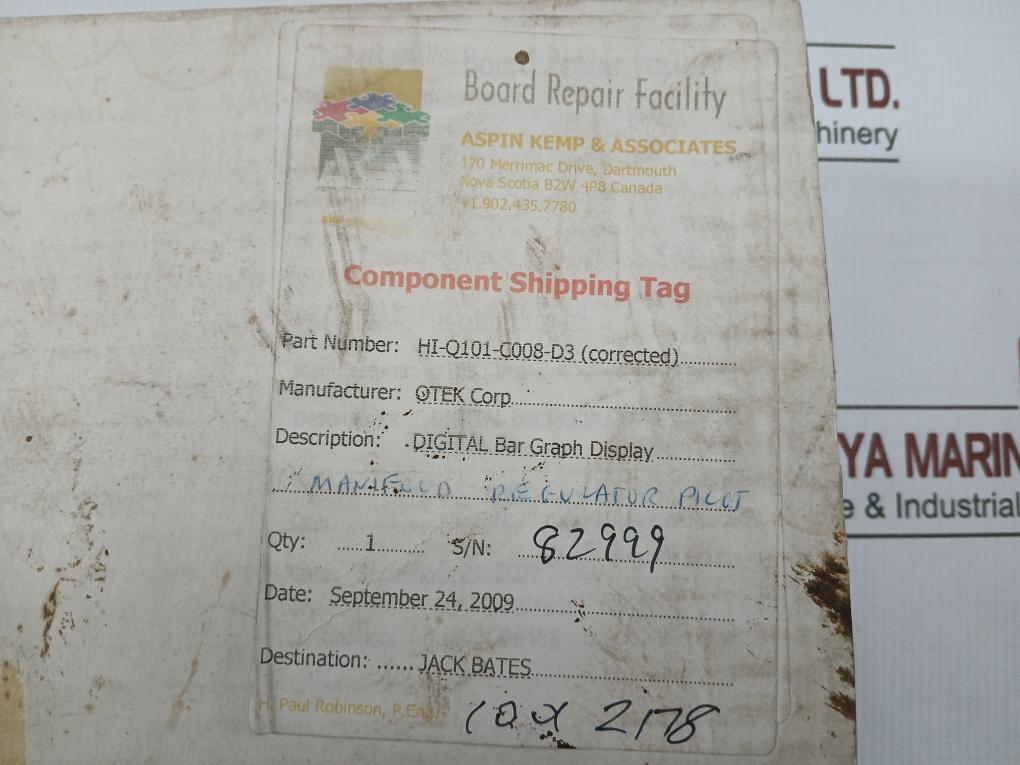 Board Repair Facility
ASPIN KEMP & ASSOCIATES
170 Merrimac Drive, Dartmouth
Nova Scotia B2W 4P8 Canada
+1.902.435.7780
Component Shipping Tag
Part Number: HI-Q101-C008-D3 (corrected)
Manufacturer: OTEK Corp
Description: DIGITAL Bar Graph Display
MANIFOLD REGULATOR PILOT
Qty: 1 S/N: 82999
Date: September 24, 2009
Destination: JACK BATES
H. Paul Robinson, P.Eng.
2178
LTD.
hinery
YA MARIN
e & Industrial